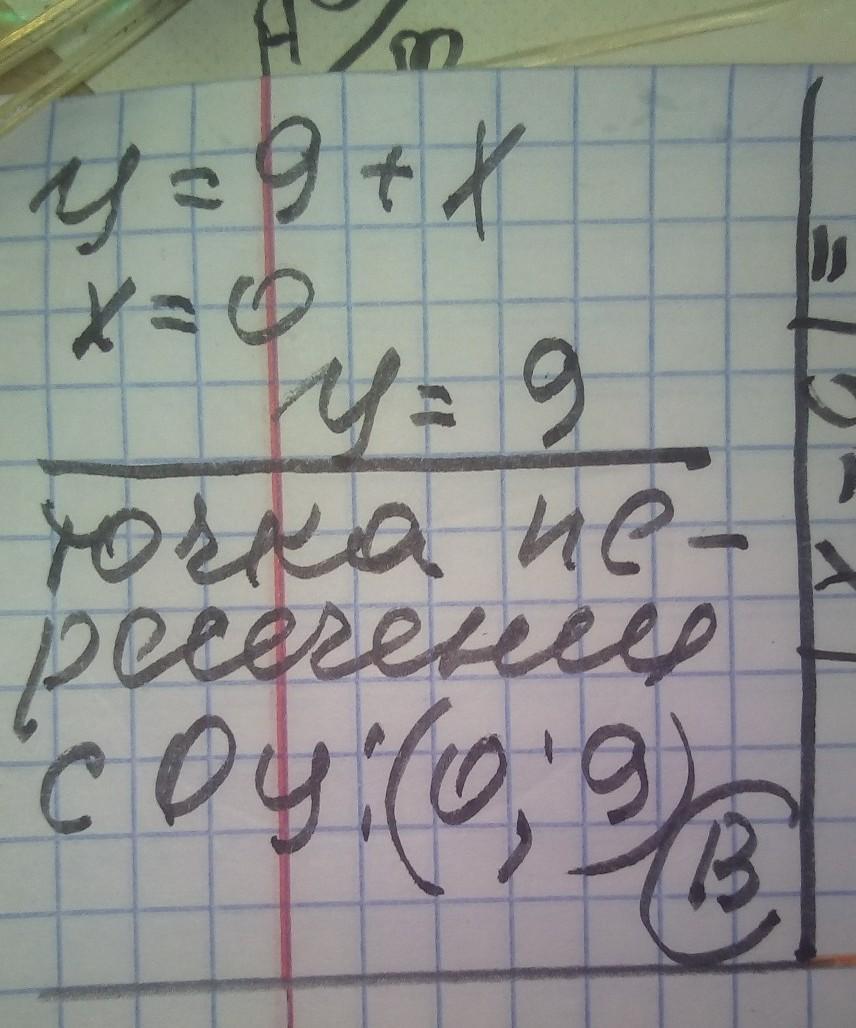 A m
y = 9 + x
x = 0
y = 9
точка пе-
ресечения
с Oy: (0; 9)
B